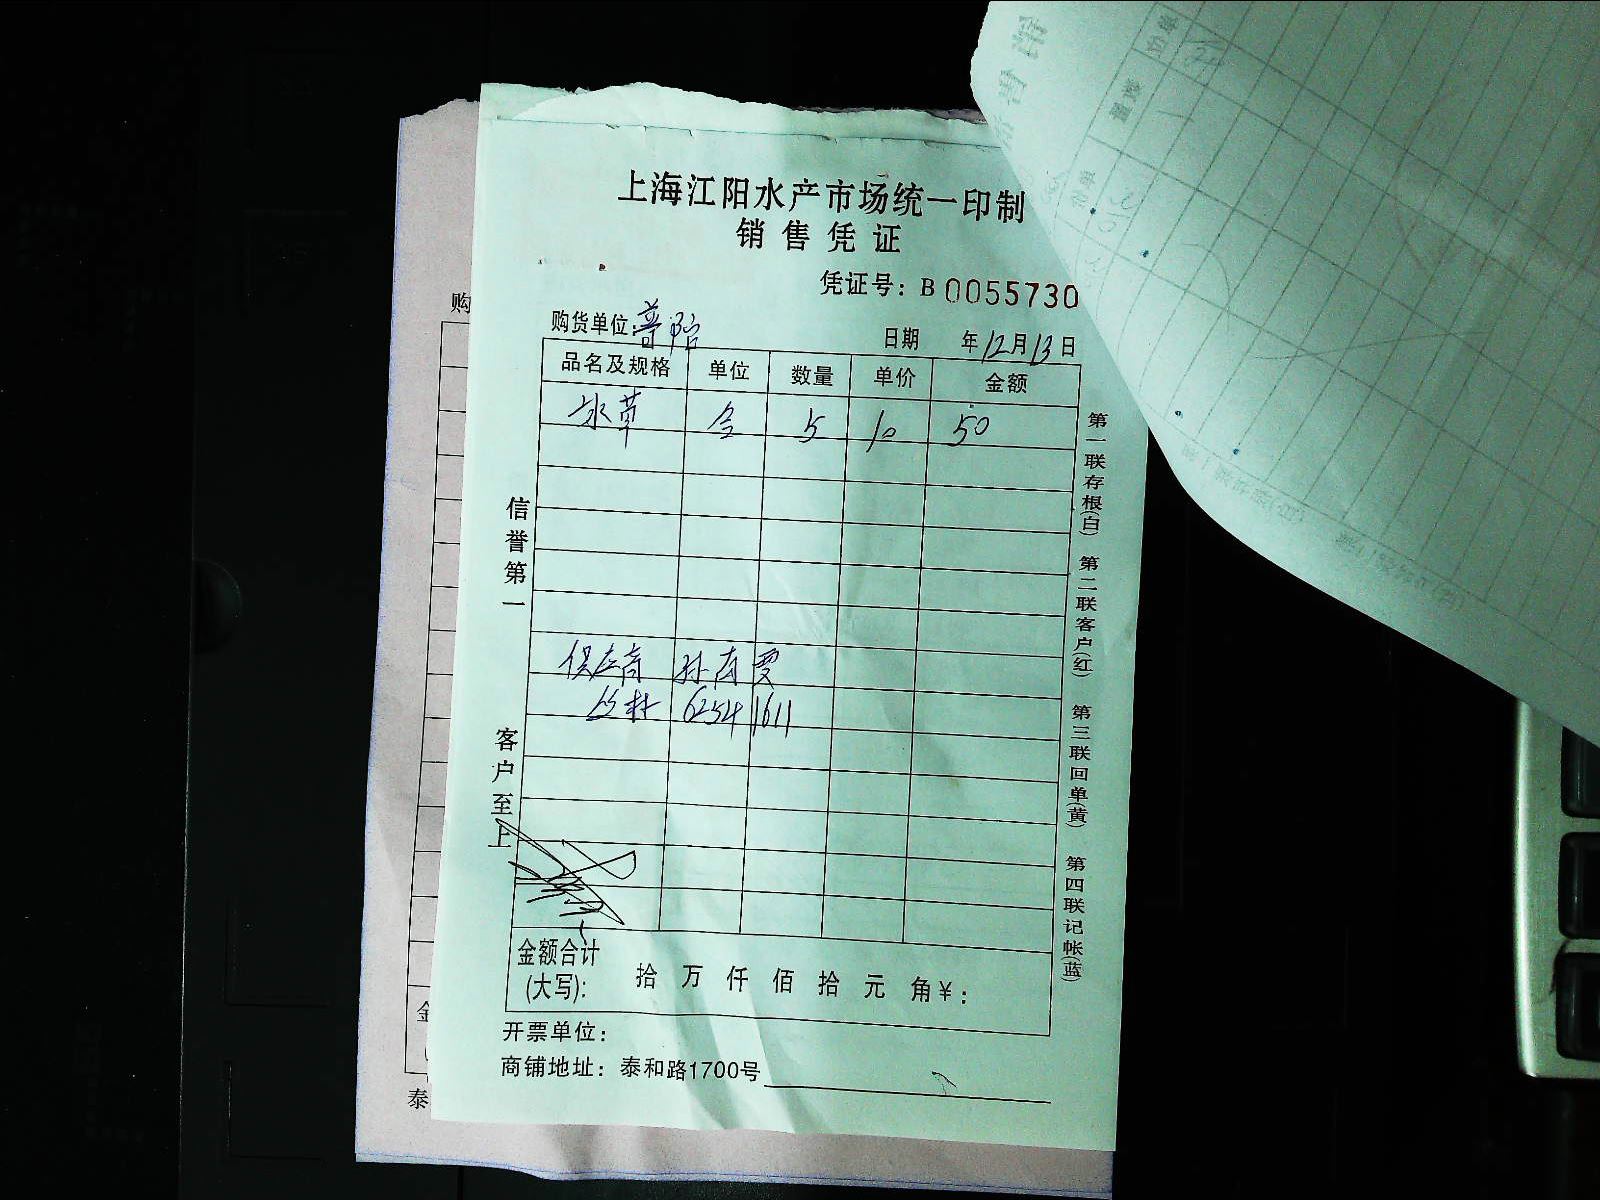 上海江阳水产市场统一印制
销售凭证
凭证号：B 0055730
购货单位：普陀
日期 年12月13日
品名及规格 单位 数量 单价 金额
水草 5 10 50
供应商 孙
6254 1611
金额合计
(大写)： 拾 万 仟 佰 拾 元 角 ¥：
开票单位：
商铺地址：泰和路1700号
信誉第一
客户至上
第一联存根(白) 第二联客户(红) 第三联回单(黄) 第四联记帐(蓝)
购
金
泰